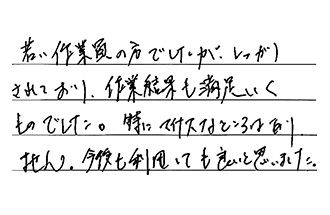 若い作業員の方でしたが、しっかり
されており、作業結果も満足いく
ものでした。特にマイナスなところはあり
ません。今後も利用しても良いと思いました。